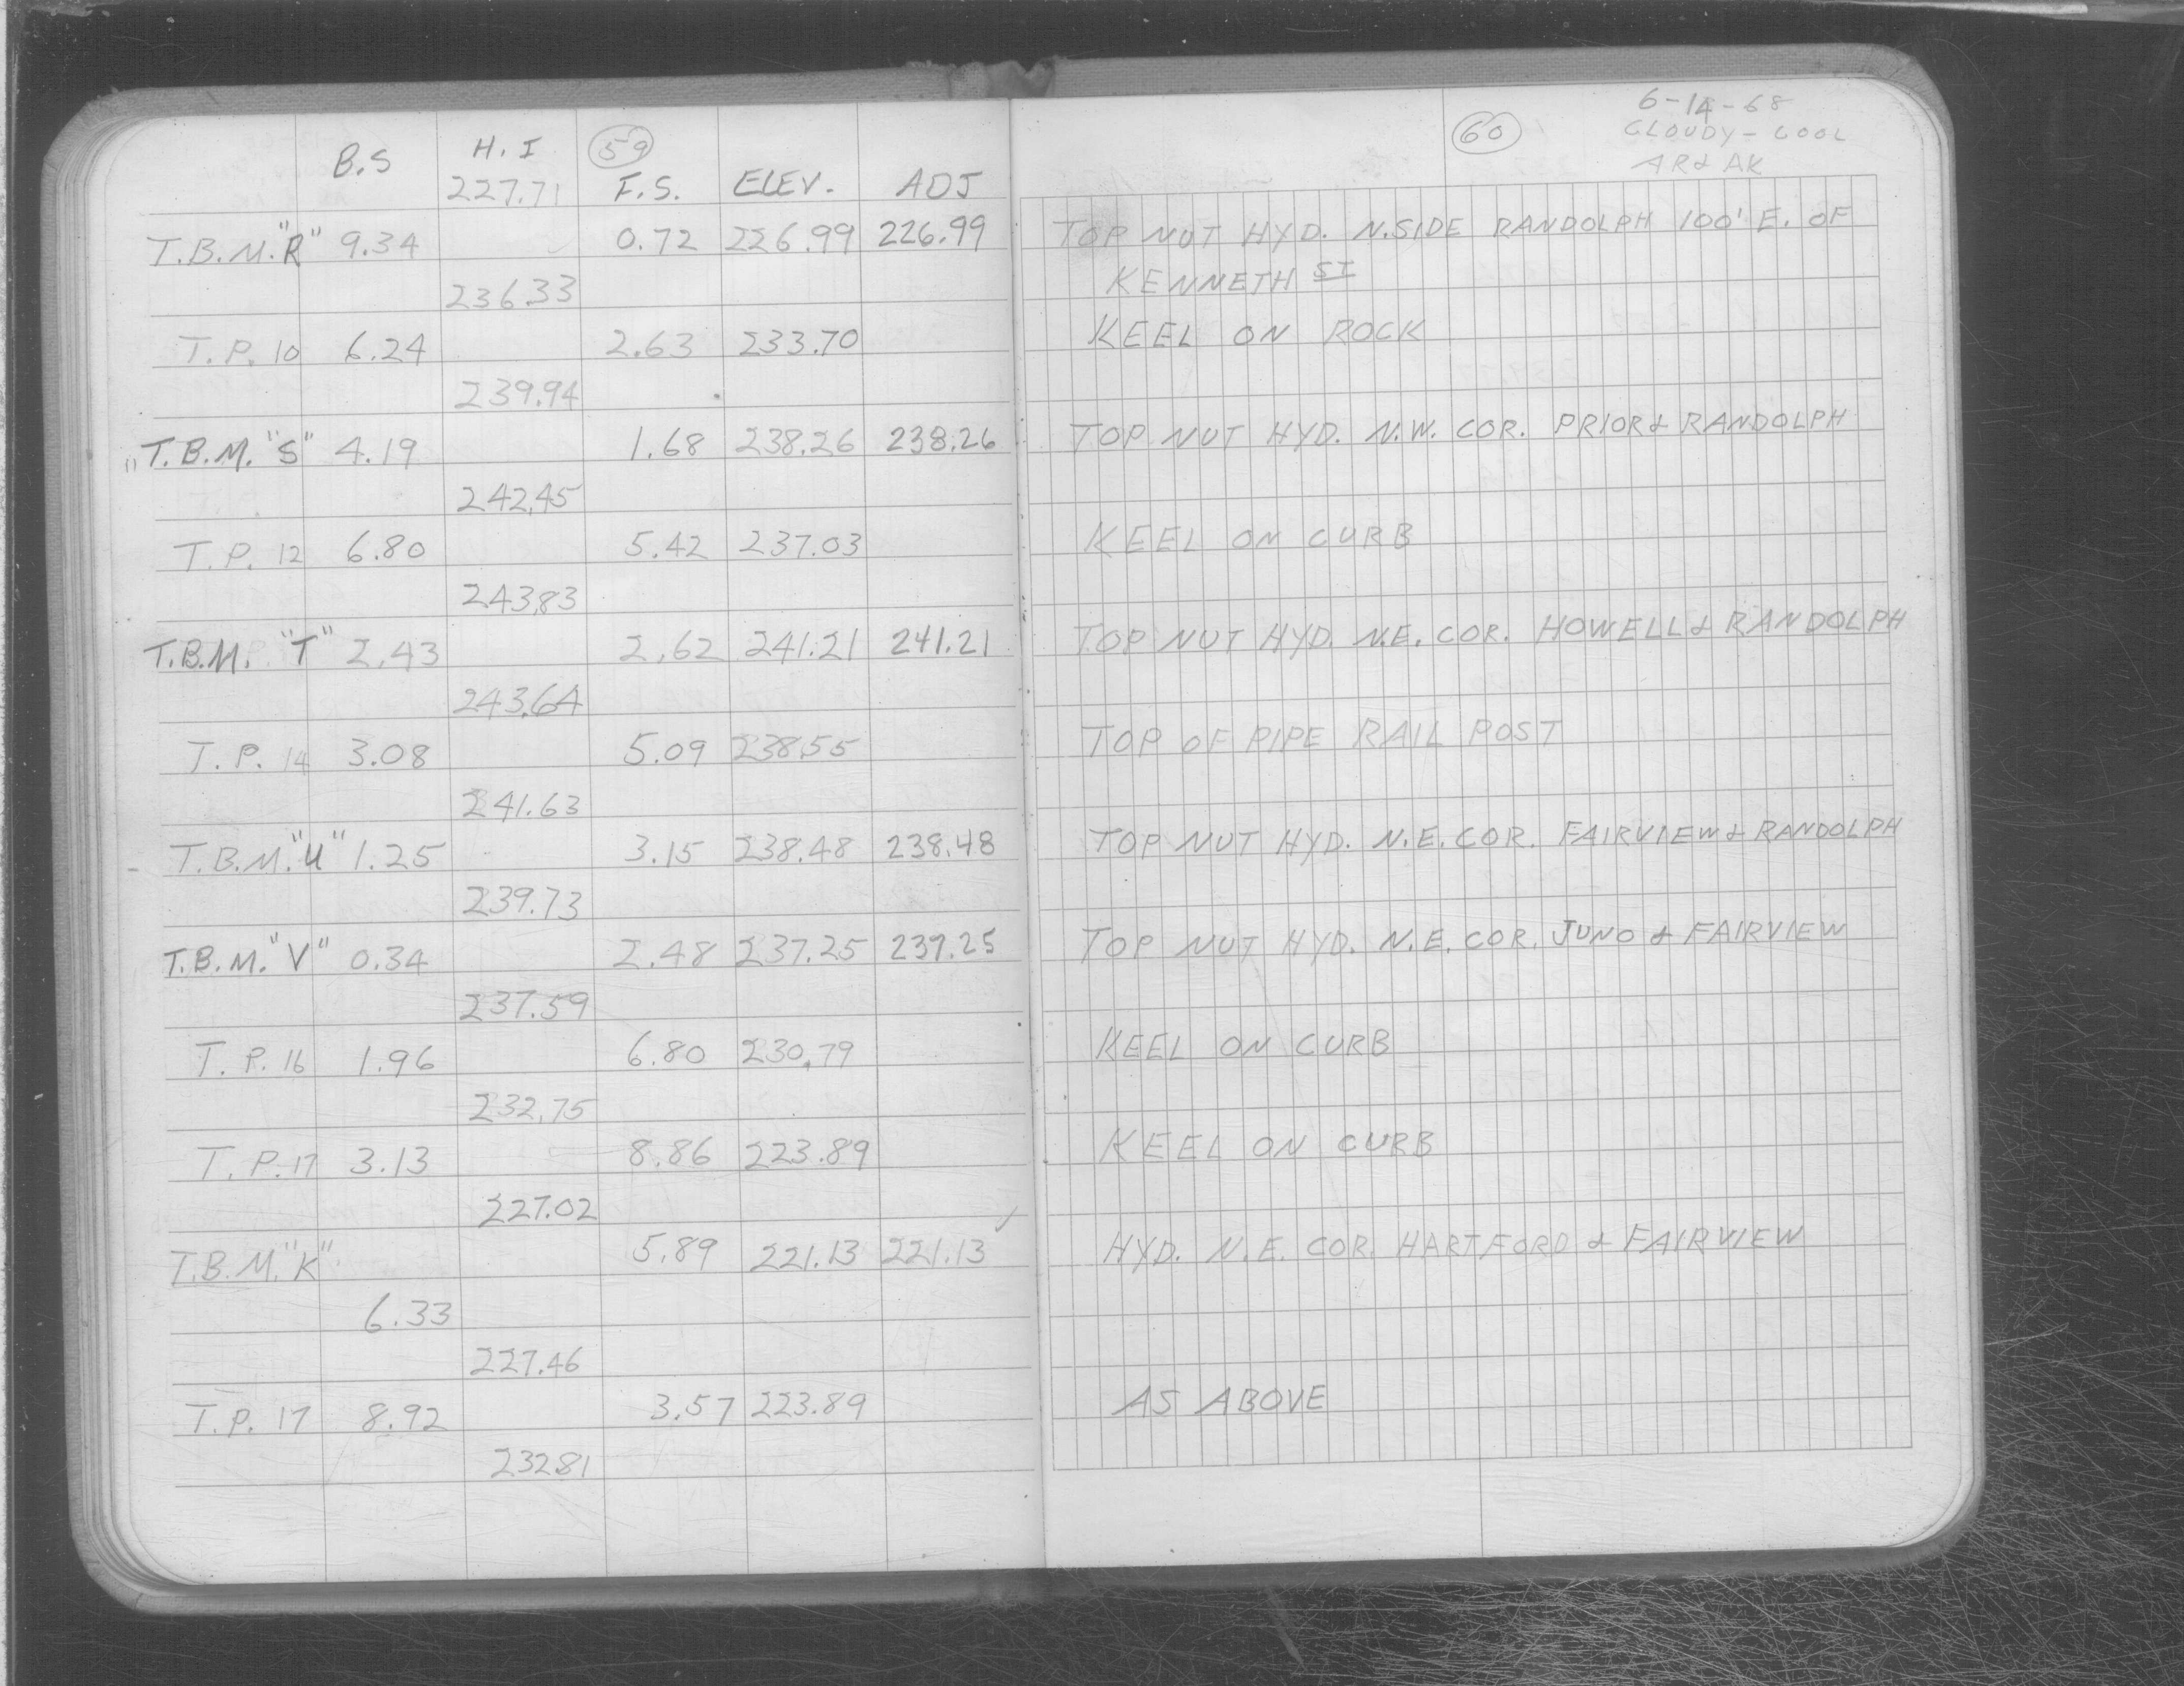 59
B.S H.I F.S. ELEV. ADJ
227.71
T.B.M."R" 9.34 0.72 226.99 226.99
236.33
T.P. 10 6.24 2.63 233.70
239.94
T.B.M. "S" 4.19 1.68 238.26 238.26
242.45
T.P. 12 6.80 5.42 237.03
243.83
T.B.M. "T" 2.43 2.62 241.21 241.21
243.64
T.P. 14 3.08 5.09 238.55
241.63
T.B.M."U" 1.25 3.15 238.48 238.48
239.73
T.B.M."V" 0.34 2.48 237.25 237.25
237.59
T.P. 16 1.96 6.80 230.79
232.75
T.P. 17 3.13 8.86 223.89
227.02
T.B.M."K" 5.89 221.13 221.13 ✓
6.33
227.46
T.P. 17 8.92 3.57 223.89
232.81
60
6-14-68
CLOUDY - COOL
AR & AK
TOP NUT HYD. N.SIDE RANDOLPH 100' E. OF
KENNETH ST
KEEL ON ROCK
TOP NUT HYD. N.W. COR. PRIOR & RANDOLPH
KEEL ON CURB
TOP NUT HYD. N.E. COR. HOWELL & RANDOLPH
TOP OF PIPE RAIL POST
TOP NUT HYD. N.E. COR. FAIRVIEW & RANDOLPH
TOP NUT HYD. N.E. COR. JUNO & FAIRVIEW
KEEL ON CURB
KEEL ON CURB
HYD. N.E. COR. HARTFORD & FAIRVIEW
AS ABOVE